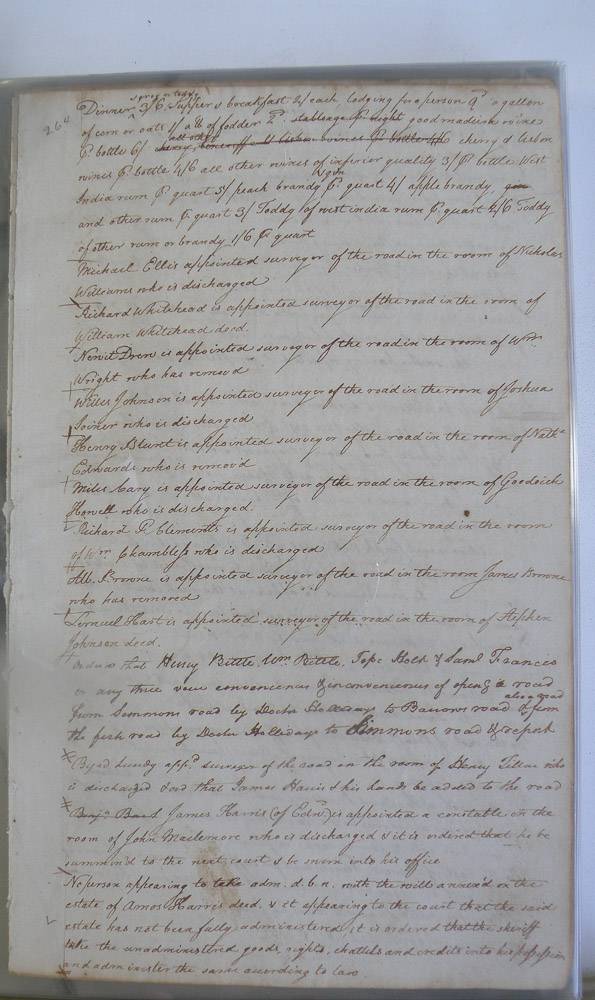 264
spring or today
Dinner 3/6 Supper & breakfast 2/ each, lodging for a person 9d. a gallon
of corn or oats / a lb of fodder 2d. stableage
good madeira wine
Pr. bottle 6/
cherry & lisbon
wines Pr. bottle 4/6 all other wines of inferior quality 3/ Pr. bottle West
India rum Pr. quart 5/ peach brandy Pr. quart 4/ apple brandy,
and other rum Pr. quart 3/ Toddy of west india rum Pr. quart 2/6 Toddy
of other rum or brandy 1/6 Pr. quart
Michael Ellis appointed surveyor of the road in the room of Nicholas
Williams who is discharged
Richard Whitehead is appointed surveyor of the road in the room of
William Whitehead deced.
Newit Drew is appointed surveyor of the road in the room of Wm.
Wright who has remov'd
Willis Johnson is appointed surveyor of the road in the room of Joshua
Joiner who is discharged
Henry Blunt is appointed surveyor of the road in the room of Nathl.
Edwards who is remov'd
Miles Cary is appointed surveyor of the road in the room of Goodrich
Howell who is discharged
Richard P. Clements is appointed surveyor of the road in the room
of Wm. Chambless who is discharged
Alb. Browne is appointed surveyor of the road in the room James Browne
who has removed
Lemuel Hart is appointed surveyor of the road in the room of Stephen
Johnson deced.
Orders that Henry Bittle, Wm. Bittle, Holt & Saml. Francis
or any three view conveniences & inconveniences of openg. a road
also a road
from Simmons road by Doctr. Hollidays to Barrows road & from
the fish road by Doctr. Hollidays to Simmons road & report
Byrd Lundy appd. surveyor of the road in the room of Henry who
is discharged & ord. that James Harris & his hands be added to the road
James Harris (of Edn.) is appointed a constable in the
room of John Maclemore who is discharged & it is ordered that he be
summon'd to the next court & be sworn into his office
No person appearing to take adm. d. b. n. with the will annex'd on the
estate of Amos Harris deced. & it appearing to the court that the said
estate has not been fully administered, it is ordered that the sheriff
take the unadministered goods, rights, chattels and credits into his possession
and administer the same according to law.